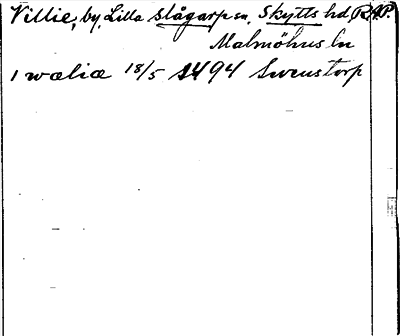 Villie, by, Lilla Slågarp sn. Skytts hd, R.A.P.
Malmöhus ln
1 wæliæ 18/5 1494 Swenstorp